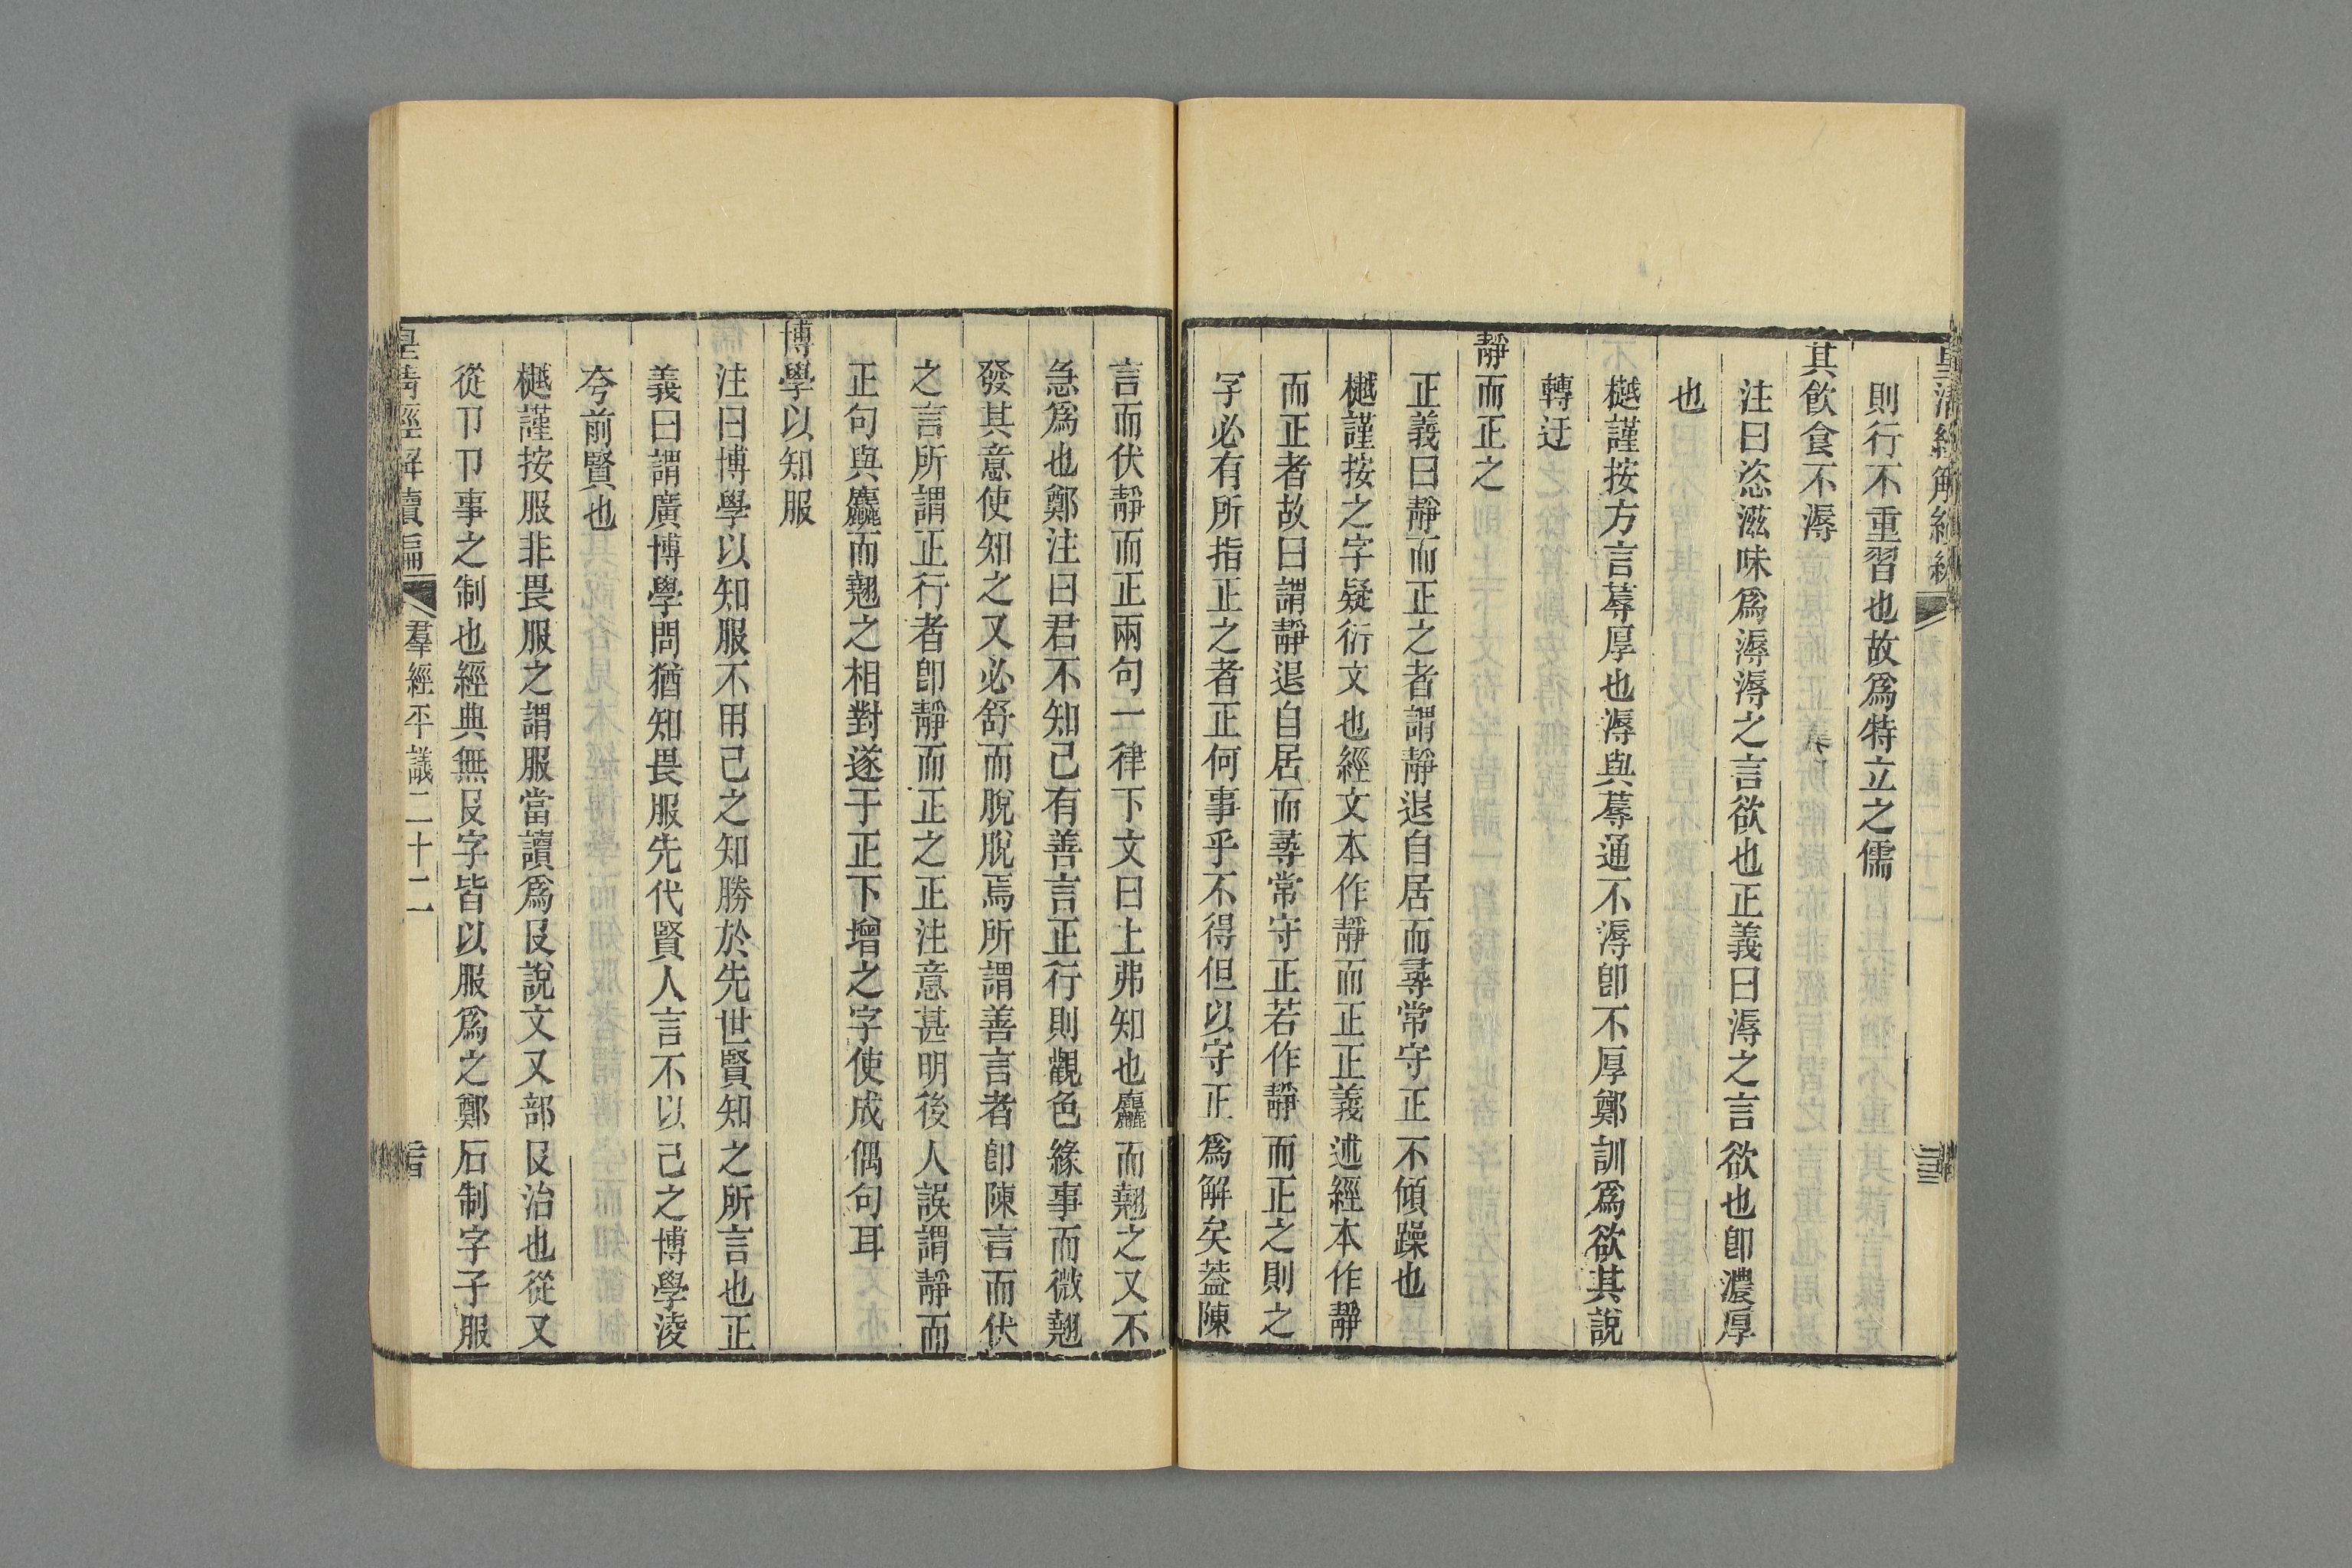 則行不重習也故爲特立之儒
其飲食不溽
注曰恣滋味爲溽溽之言欲也正義曰溽之言欲也卽濃厚
也
樾謹按方言蓐厚也溽與蓐通不溽卽不厚鄭訓爲欲其說
轉迂
靜而正之
正義曰靜而正之者謂靜退自居而尋常守正不傾躁也
樾謹按之字疑衍文也經文本作靜而正正義述經本作靜
而正者故曰謂靜退自居而尋常守正若作靜而正之則之
字必有所指正之者正何事乎不得但以守正爲解矣葢陳
言而伏靜而正兩句一律下文曰上弗知也麤而翹之又不
急爲也鄭注曰君不知己有善言正行則觀色緣事而微翹
發其意使知之又必舒而脫脫焉所謂善言者卽陳言而伏
之言所謂正行者卽靜而正之正注意甚明後人誤謂靜而
正句與麤而翹之相對遂于正下增之字使成偶句耳
博學以知服
注曰博學以知服不用己之知勝於先世賢知之所言也正
義曰謂廣博學問猶知畏服先代賢人言不以己之博學淩
夸前賢也
樾謹按服非畏服之謂服當讀爲𠬝說文又部𠬝治也從又
從卪卪事之制也經典無𠬝字皆以服爲之鄭石制字子服
皇淸經解續編
羣經平議二十二